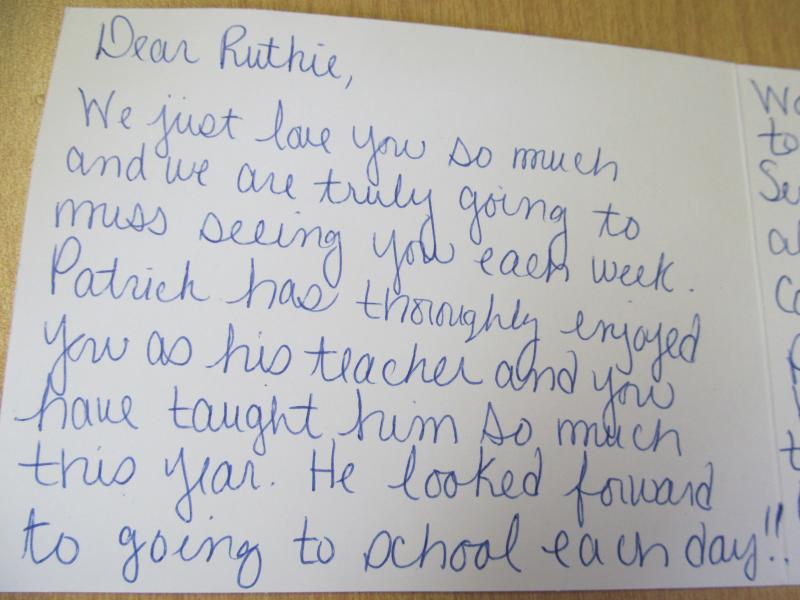 Dear Ruthie,
We just love you so much
and we are truly going to
miss seeing you each week.
Patrick has thoroughly enjoyed
you as his teacher and you
have taught him so much
this year. He looked forward
to going to school each day!!
to